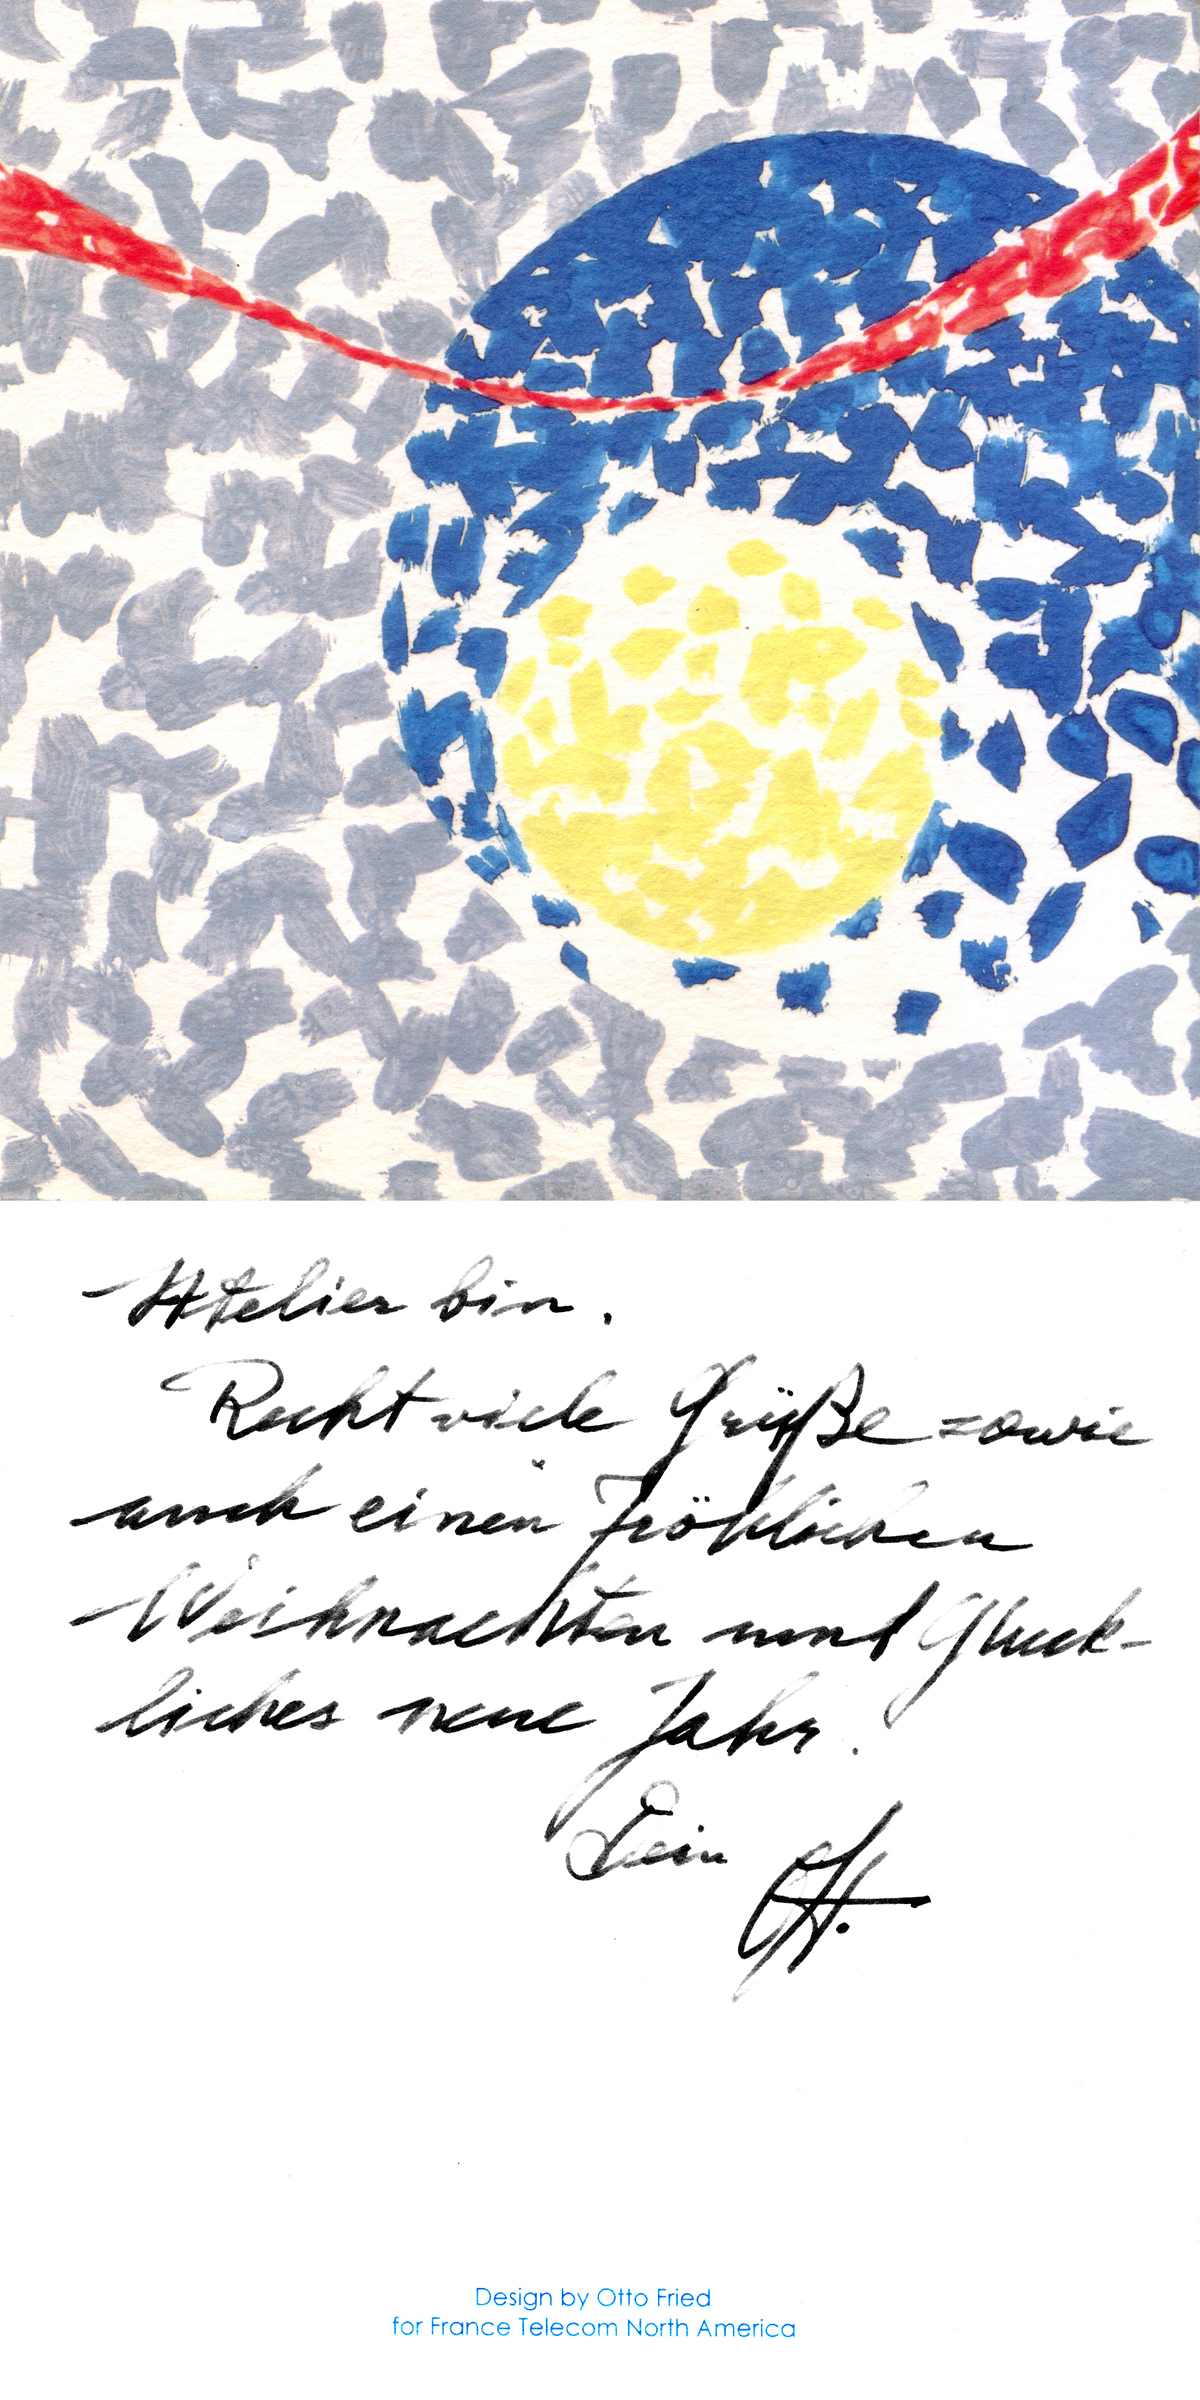 Atelier bin.
Recht viele Grüße sowie
auch einen Fröhlichen
Weihnachten und Glück-
liches neue Jahr.
Dein
Design by Otto Fried
for France Telecom North America